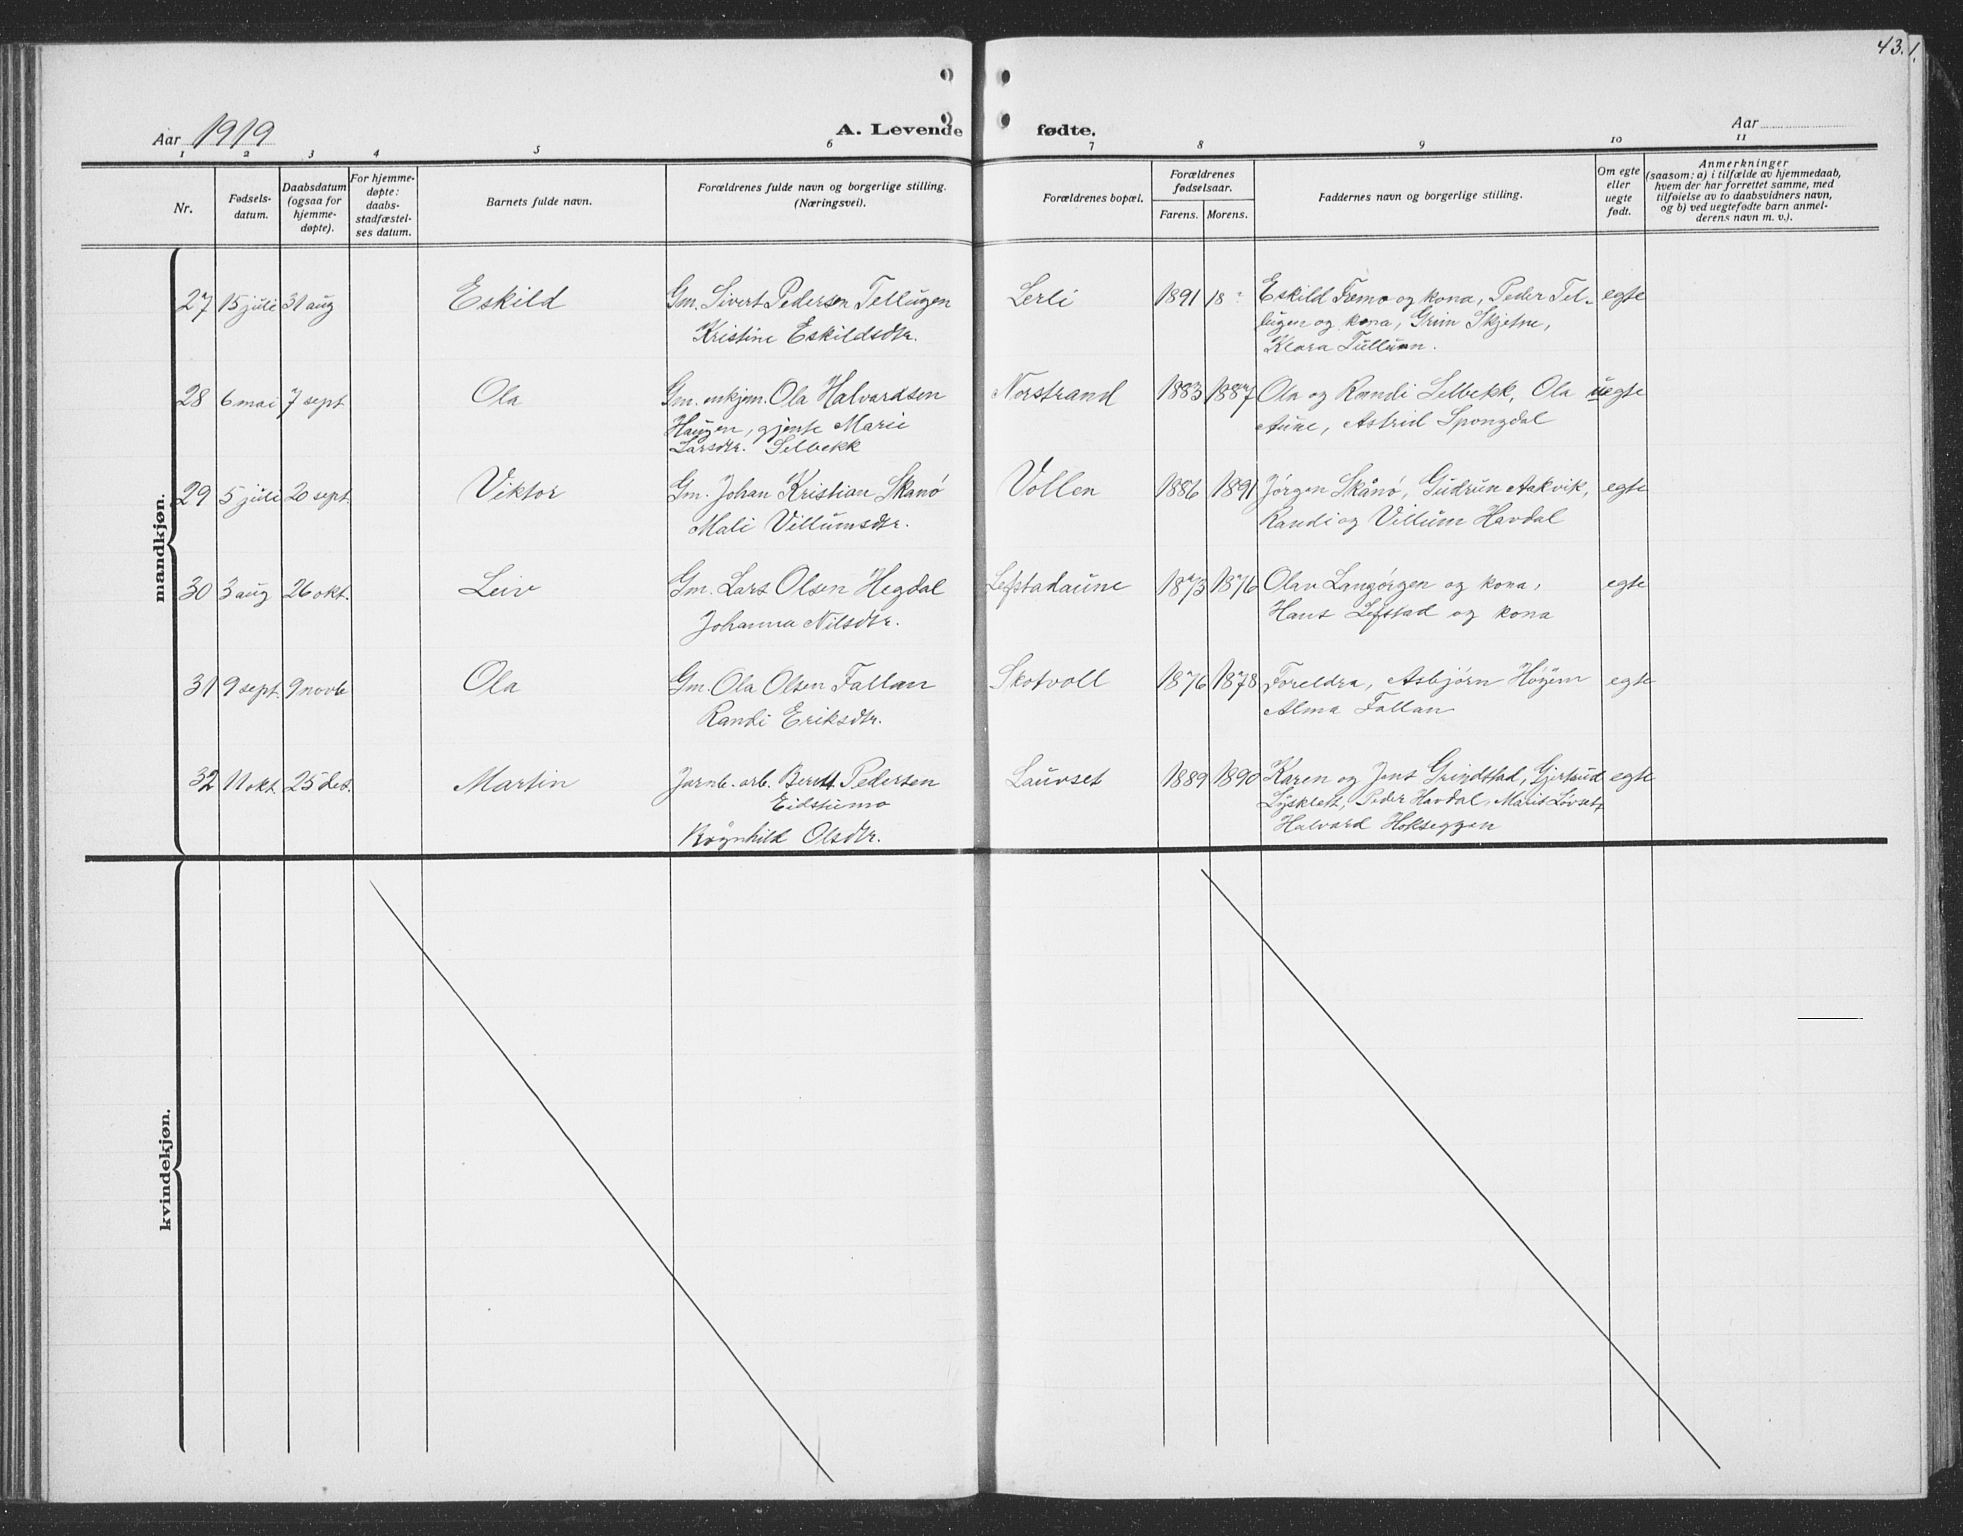 43.
Aar 1919 A. Levende fødte. Aar
1 2 3 4 5 6 7 8 9 10 11
Nr.
Fødsels-
datum.
Daabsdatum
(ogsaa for
hjemme-
døpte).
For hjemme-
døpte:
daabs-
stadfæstel-
ses datum.
Barnets fulde navn.
Forældrenes fulde navn og borgerlige stilling.
(Næringsvei).
Forældrenes bopæl.
Forældrenes
fødselsaar.
Farens. Morens.
Faddernes navn og borgerlige stilling.
Om egte
eller
uegte
født.
Anmerkninger
(saasom: a) i tilfælde av hjemmedaab,
hvem der har forrettet samme, med
tilføielse av to daabsvidners navn,
og b) ved uegtefødte barn anmel-
derens navn m. v.).
mandkjøn.
27 15 juli 31 aug Eskild Gm. Sivert Pedersen Tellugen Lerli 1891 18 Eskild Fremo og kona, Peder Tel- egte
Kristine Eskildsdtr. lugen og kona, Grim Skjetne,
Klara Tulluan.
28 6 mai 7 sept Ola Gm. enkjem. Ola Halvardsen Norstrand 1883 1887 Ola og Randi Selbekk, Ola uegte
Haugen, gjente Marie Aune, Astrid Spongdal
Larsdtr. Selbekk
29 5 juli 20 sept. Viktor Gm. Johan Kristian Skånø Vollen 1886 1891 Jørgen Skånø, Gudrun Aakvik, egte
Mali Villumsdtr. Randi og Villum Havdal
30 3 aug 26 okt. Leiv Gm. Lars Olsen Hegdal Lefstadaune 1873 1876 Olav Langørgen og kona, egte
Johanna Nilsdtr. Hans Lefstad og kona
31 9 sept. 9 novb Ola Gm. Ola Olsen Fallan Skotvoll 1876 1878 Foreldra, Asbjørn Høyem egte
Randi Eriksdtr. Alma Fallan
32 11 okt. 25 des. Martin Jarnb. arb. Berdt Pedersen Lauvset 1889 1890 Karen og Jens Grindstad, Gjertrud egte
Eidstumo Lysklett, Peder Havdal, Marit Løvset,
Ragnhild Olsdtr. Halvard Hokseggen
kvindekjøn.